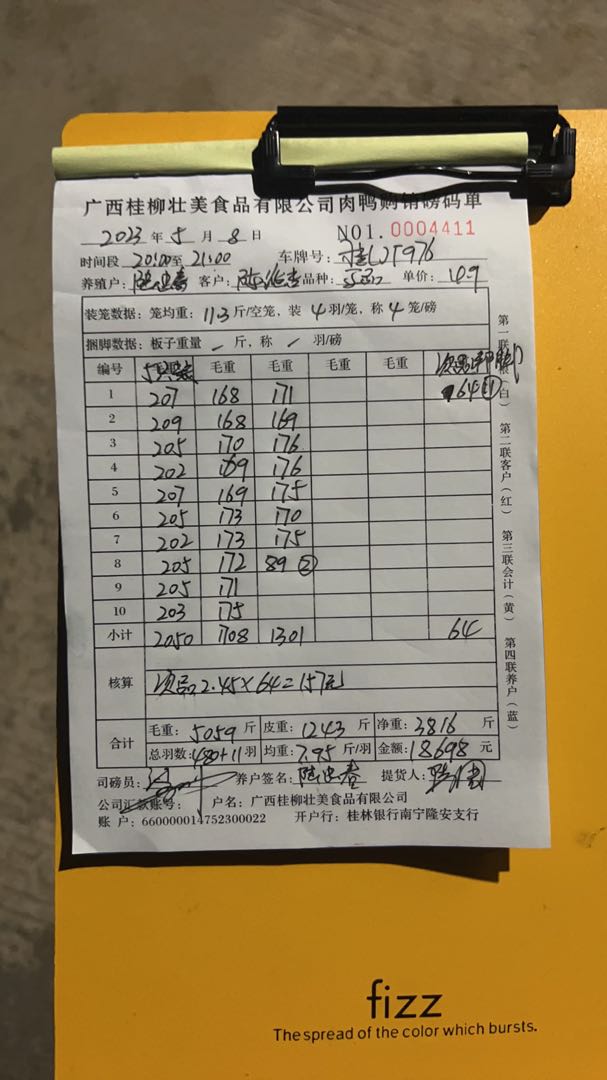 广西桂柳壮美食品有限公司肉鸭购销磅码单
2023 年 5 月 8 日 NO1. 0004411
时间段 20:00至 21:00 车牌号: 桂L25976
养殖户: 客户: 品种: 单价: 4.9
装笼数据: 笼均重: 11.3 斤/空笼, 装 4 羽/笼, 称 4 笼/磅
捆脚数据: 板子重量 — 斤, 称 — 羽/磅
编号 毛重 毛重 毛重 毛重
1 207 168 171 64 11
2 209 168 169
3 205 170 176
4 202 169 176
5 207 169 175
6 205 173 170
7 202 173 175
8 205 172 89 ②
9 205 171
10 203 175
小计 2050 1708 1301 64
核算 次品2.45×64=157元
合计 毛重: 5059 斤 皮重: 1243 斤 净重: 3816 斤
总羽数: 480+11 羽 均重: 7.95 斤/羽 金额: 18698 元
司磅员: 养户签名: 提货人:
公司汇款账号: 户名: 广西桂柳壮美食品有限公司
账 户: 660000014752300022 开户行: 桂林银行南宁隆安支行
第一联(白) 第二联客户(红) 第三联会计(黄) 第四联养户(蓝)
fizz
The spread of the color which bursts.